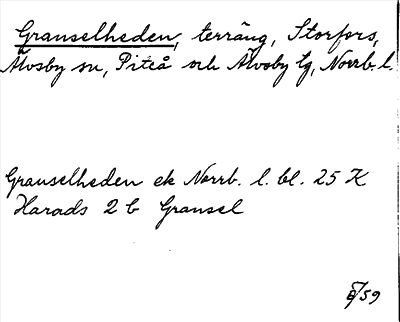 Granselheden, terräng, Storfors,
Älvsby sn, Piteå och Älvsby tg, Norrb. l.
Granselheden ek Norrb. l. bl. 25 K
Harads 2 b Gransel
/59